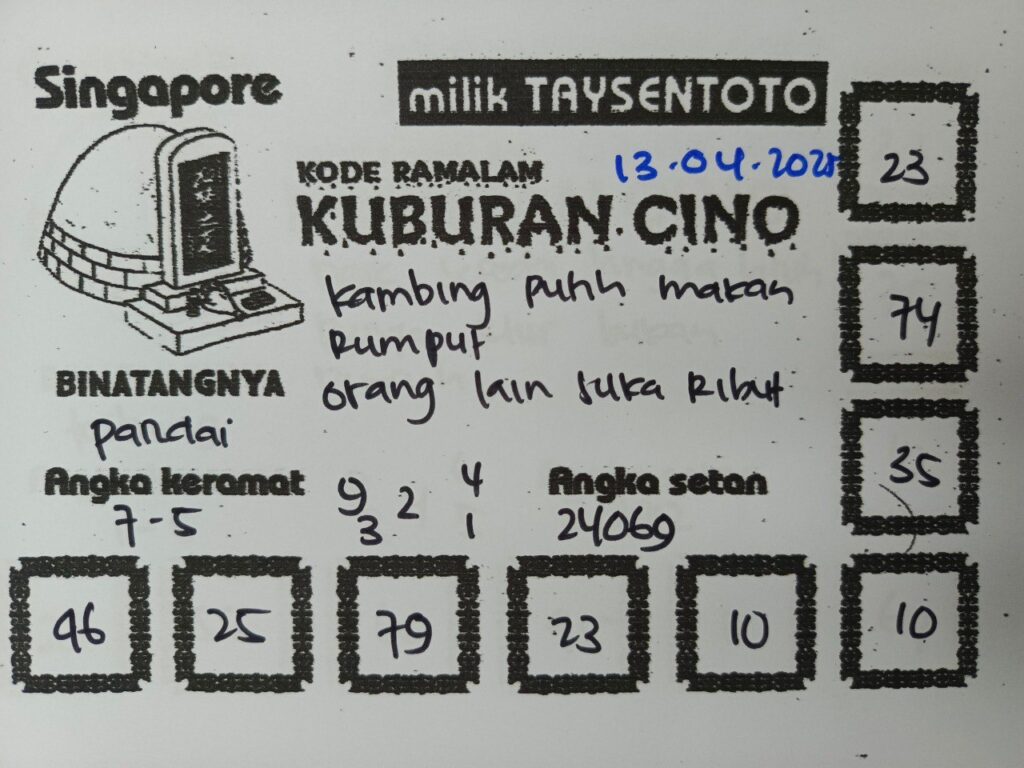 Singapore
milik TAYSENTOTO
KODE RAMALAM
13.04.2025
KUBURAN CINO
kambing putih makan
Rumput
orang lain suka Ribut
BINATANGNYA
pandai
Angka keramat
7-5
9 2 4
3 1
Angka setan
24069
23
74
35
46
25
79
23
10
10